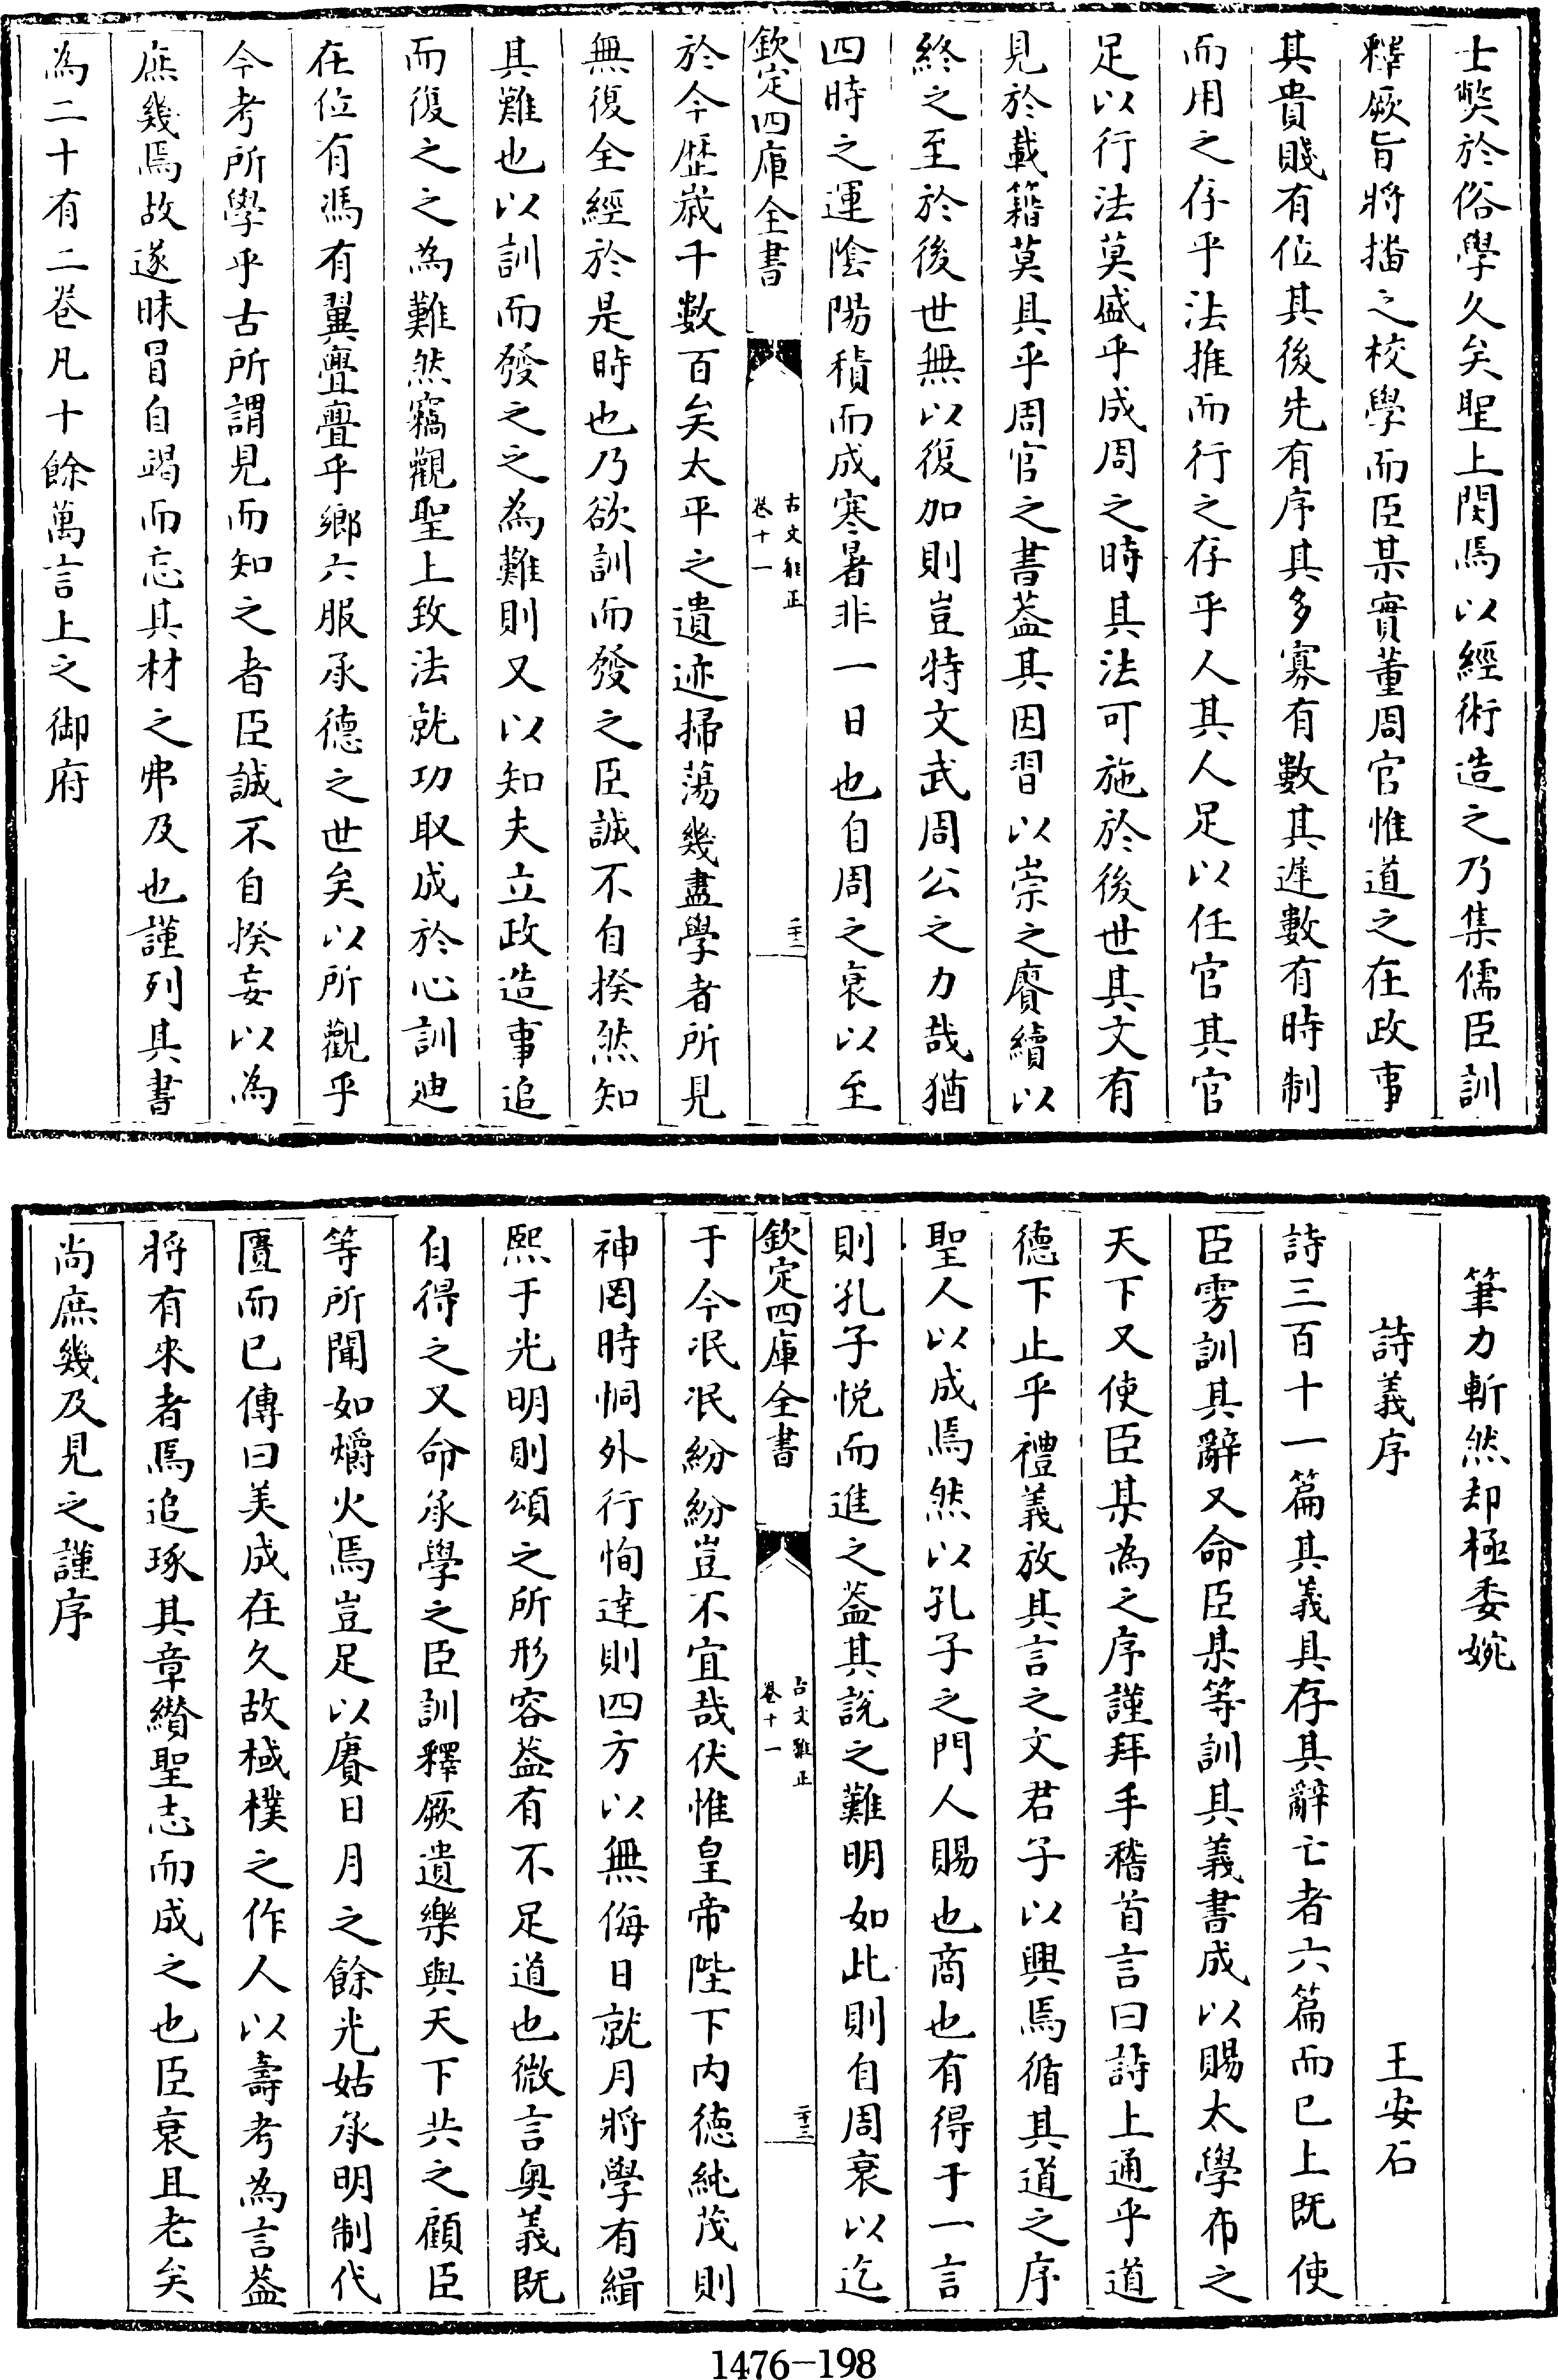 士獘於俗學久矣聖上閔焉以經術造之乃集儒臣訓
釋厥旨將播之校學而臣某實董周官惟道之在政事
其貴賤有位其後先有序其多寡有數其遲數有時制
而用之存乎法推而行之存乎人其人足以任官其官
足以行法莫盛乎成周之時其法可施於後世其文有
見於載籍莫具乎周官之書葢其因習以崇之賡續以
終之至於後世無以復加則豈特文武周公之力哉猶
四時之運陰陽積而成寒暑非一日也自周之衰以至
欽定四庫全書
古文雅正
卷十一
二十二
於今歴歲千數百矣太平之遺迹掃蕩幾盡學者所見
無復全經於是時也乃欲訓而發之臣誠不自揆然知
其難也以訓而發之之為難則又以知夫立政造事追
而復之之為難然竊觀聖上致法就功取成於心訓迪
在位有馮有翼亹亹乎鄉六服承德之世矣以所觀乎
今考所學乎古所謂見而知之者臣誠不自揆妄以為
庶幾焉故遂昧冒自竭而忘其材之弗及也謹列其書
為二十有二卷凡十餘萬言上之御府
筆力斬然却極委婉
詩義序
王安石
詩三百十一篇其義具存其辭亡者六篇而已上既使
臣雱訓其辭又命臣某等訓其義書成以賜太學布之
天下又使臣某為之序謹拜手稽首言曰詩上通乎道
德下止乎禮義放其言之文君子以興焉循其道之序
聖人以成焉然以孔子之門人賜也商也有得于一言
則孔子悅而進之葢其說之難明如此則自周衰以迄
欽定四庫全書
古文雅正
卷十一
二十三
于今泯泯紛紛豈不宜哉伏惟皇帝陛下内德純茂則
神罔時恫外行恂達則四方以無侮日就月將學有緝
熙于光明則頌之所形容葢有不足道也微言奥義既
自得之又命承學之臣訓釋厥遺樂與天下共之顧臣
等所聞如爝火焉豈足以賡日月之餘光姑承明制代
匱而已傳曰美成在久故棫樸之作人以壽考為言葢
將有來者焉追琢其章纘聖志而成之也臣衰且老矣
尚庶幾及見之謹序
1476-198